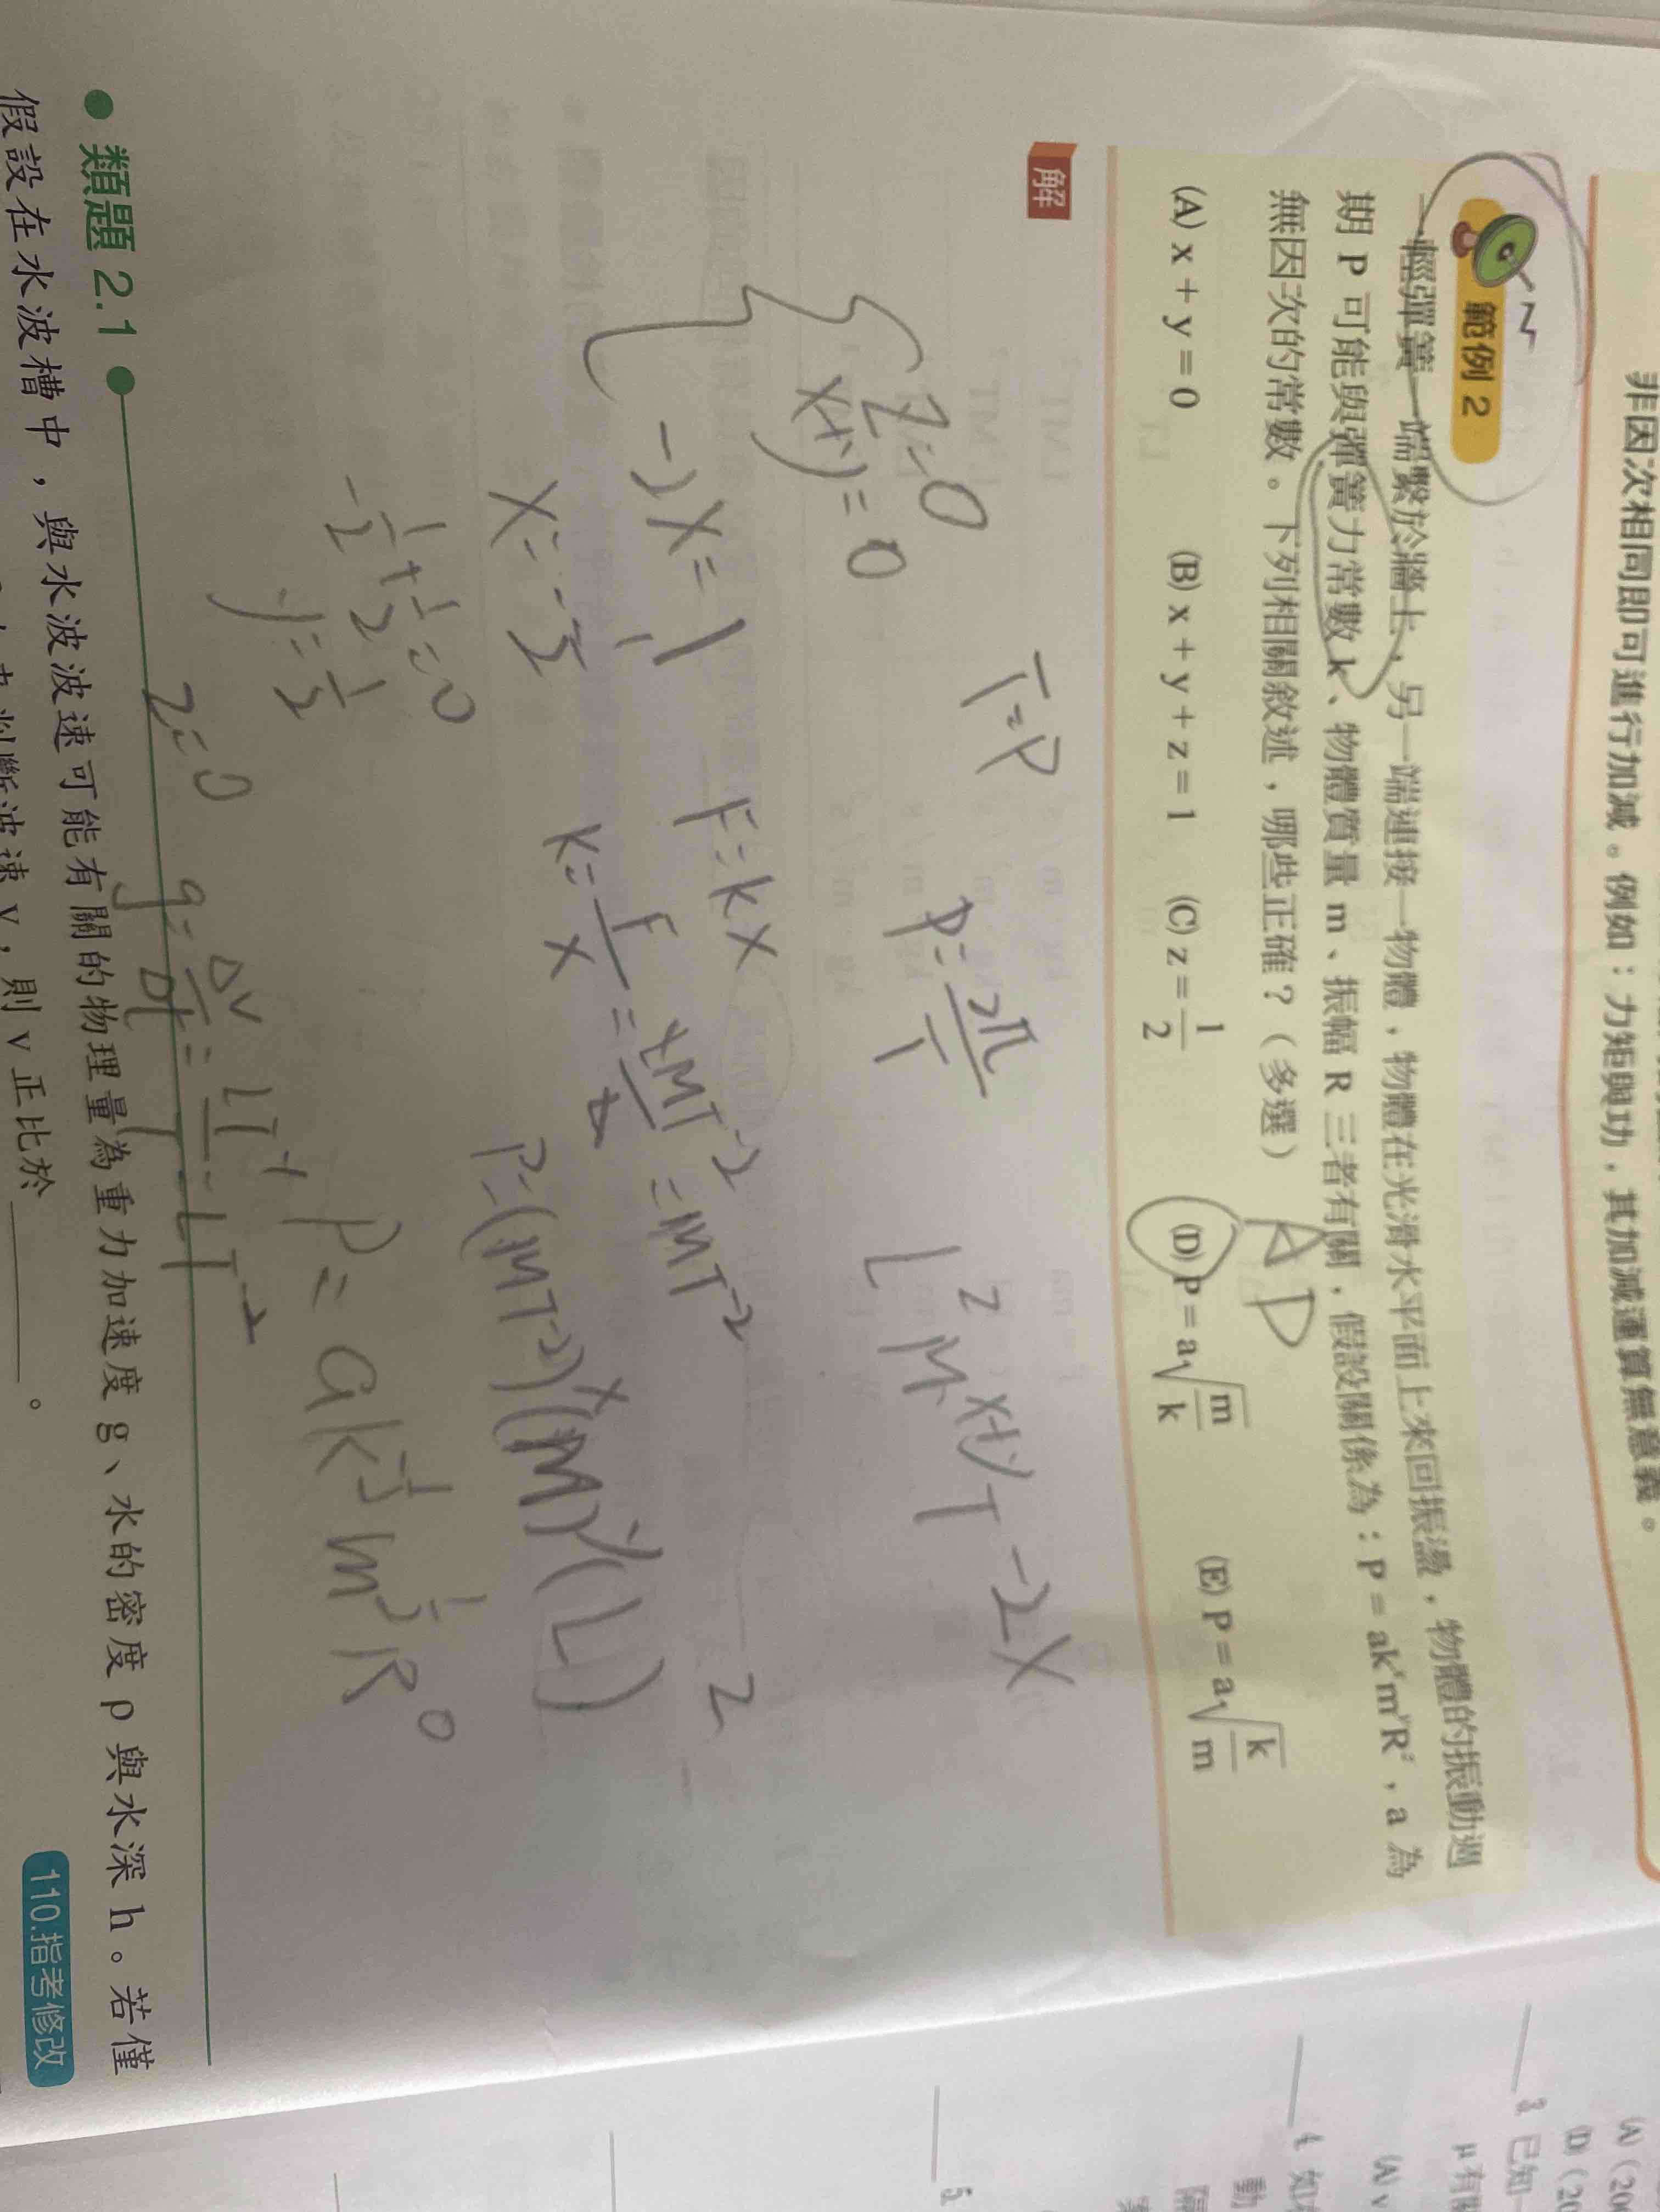 非因次相同即可進行加減。例如:力矩與功,其加減運算無意義。
範例 2
一輕彈簧一端繫於牆上,另一端連接一物體,物體在光滑水平面上來回振盪,物體的振動週
期 P 可能與彈簧力常數 k、物體質量 m、振幅 R 三者有關,假設關係為:P = akˣmʸRᶻ,a 為
無因次的常數。下列相關敘述,哪些正確?(多選)
AD
(A) x + y = 0 (B) x + y + z = 1 (C) z = 1/2 (D) P = a√(m/k) (E) P = a√(k/m)
解
T=P
P=2π/T
L^z M^x+y T^-2x
z=0
x+y=0
-2x=1
x=-1/2
-1/2+1/2=0
y=1/2
z=0
F=kx
k=F/x=LMT^-2/L=MT^-2
P=(MT^-2)^x(M)^y(L)^z
P=ak^-1/2 m^1/2 R^0
g=ΔV/Δt=LT^-1/T=LT^-2
類題 2.1
110.指考修改
假設在水波槽中,與水波波速可能有關的物理量為重力加速度 g、水的密度 ρ 與水深 h。若僅
判斷波速 v,則 v 正比於______。
3. 已知
4.
5.